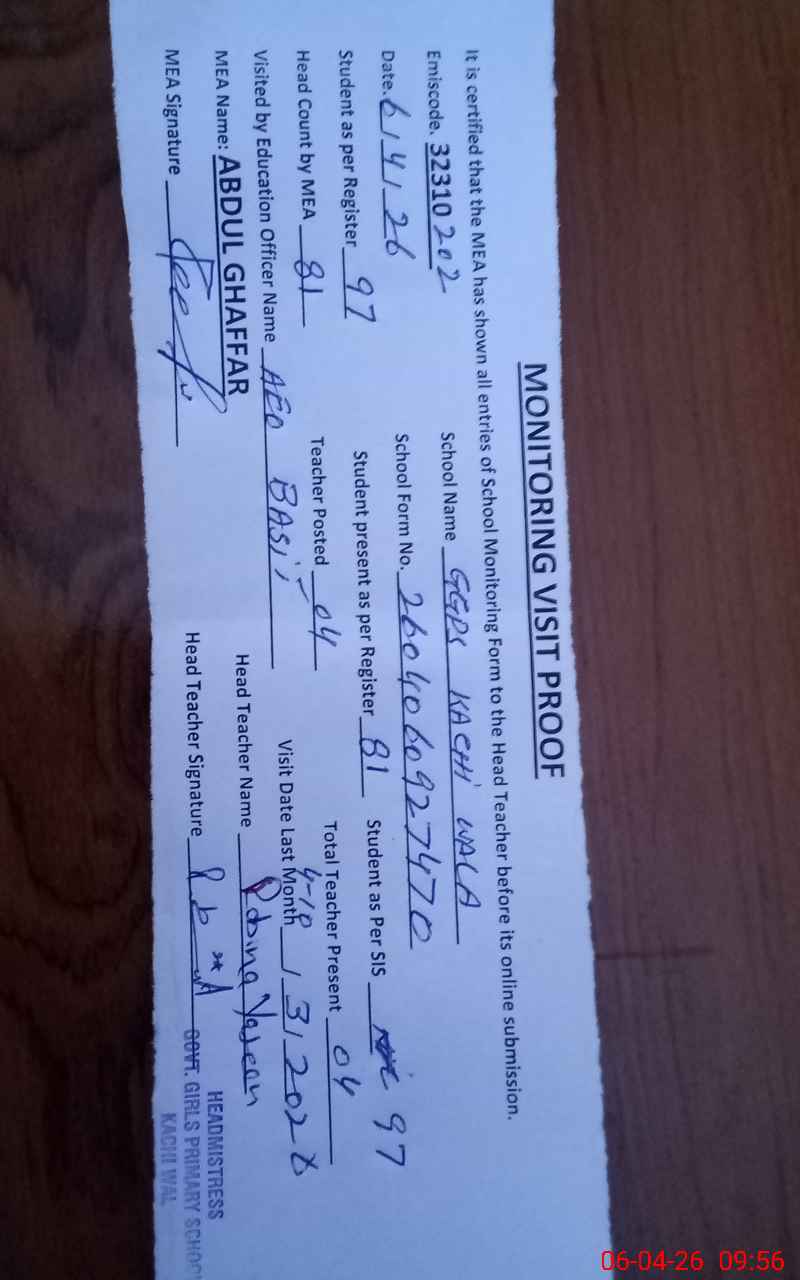 MONITORING VISIT PROOF
It is certified that the MEA has shown all entries of School Monitoring Form to the Head Teacher before its online submission.
Emiscode. 32310202 School Name GGPS KACHI WALA
Date. 6/4/26 School Form No. 2604060927470
Student as per Register 97 Student present as per Register 81 Student as Per SIS 97
Head Count by MEA 81 Teacher Posted 04 Total Teacher Present 04
Visited by Education Officer Name AEO BASIT Visit Date Last Month 4-10 / 3 / 2026
MEA Name: ABDUL GHAFFAR Head Teacher Name Robina Yasean
MEA Signature Head Teacher Signature
HEADMISTRESS
GOVT. GIRLS PRIMARY SCHOOL
KACHI WAL
06-04-26 09:56